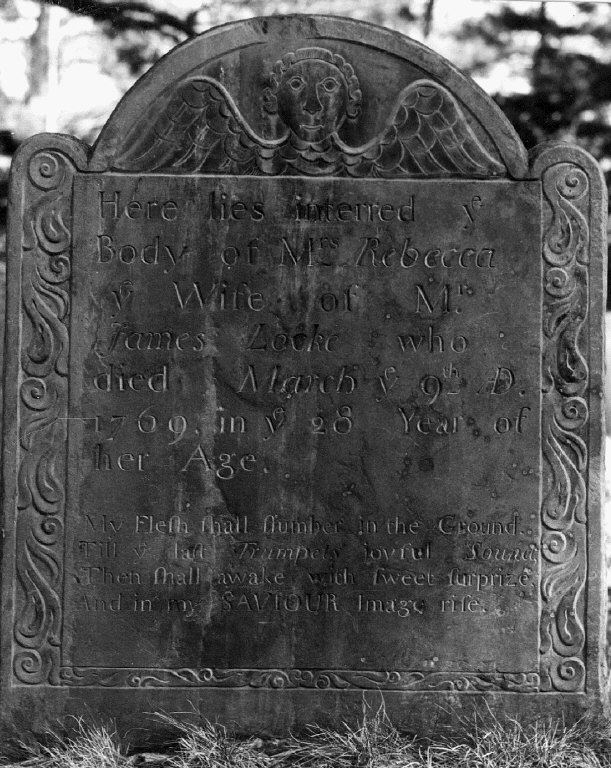 Here lies interred yͤ
Body of Mʳˢ. Rebecca
yͤ Wife of Mʳ.
James Locke who
died March yͤ 9ᵗʰ AD.
1769. in yͤ 28 Year of
her Age.
My Fleſh ſhall ſlumber in the Ground,
Till yͤ laſt Trumpets joyful Sound
Then ſhall awake with ſweet ſurprize,
And in my SAVIOUR Image riſe.